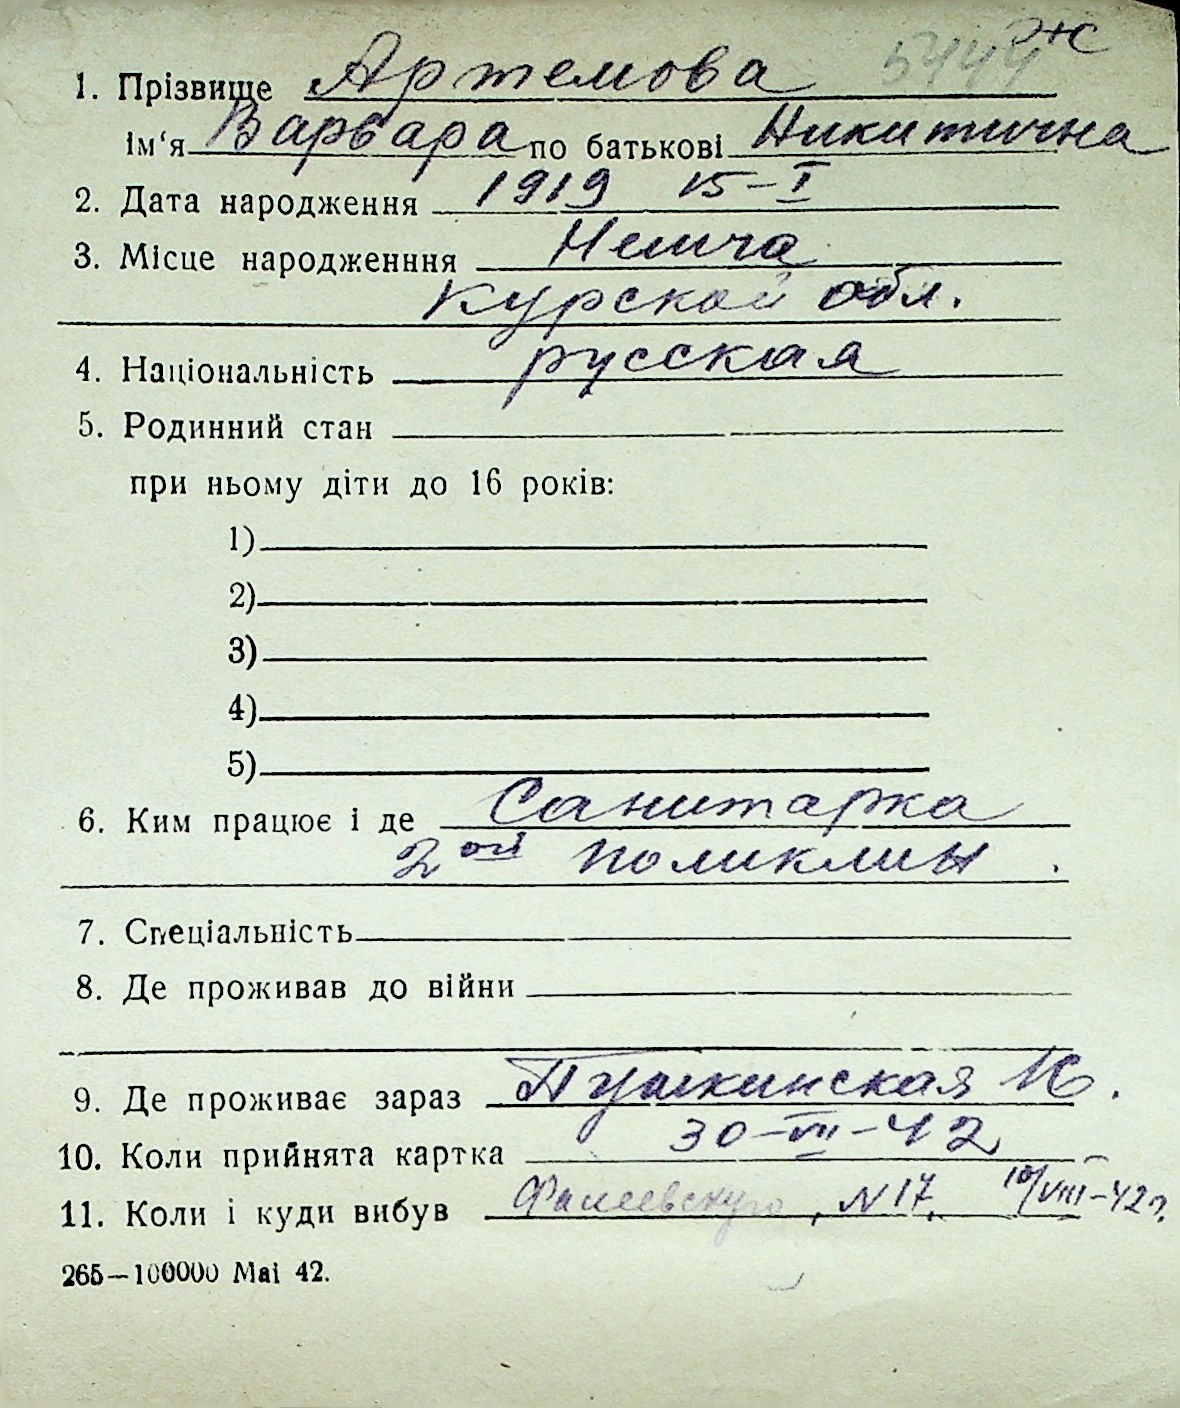 5444 Ж
1. Прізвище Артемова
ім'я Варвара по батькові Никитична
2. Дата народження 1919 15-I
3. Місце народженння Немча
Курской обл.
4. Національність русская
5. Родинний стан
при ньому діти до 16 років:
1)
2)
3)
4)
5)
6. Ким працює і де Санитарка
2ой поликлин.
7. Спеціальність
8. Де проживав до війни
9. Де проживає зараз Пушкинская 16.
10. Коли прийнята картка 30-VII-42
11. Коли і куди вибув , N 17, 10/VIII-42г.
265—100000 Mai 42.